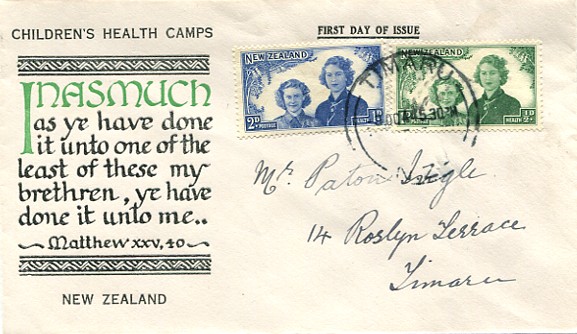 CHILDREN'S HEALTH CAMPS
FIRST DAY OF ISSUE
INASMUCH
as ye have done
it unto one of the
least of these my
brethren, ye have
done it unto me..
Matthew xxv, 40
NEW ZEALAND
NEW ZEALAND
2D POSTAGE HEALTH 1D
NEW ZEALAND
1D POSTAGE HEALTH ½D
TIMARU
5.30 PM
N.Z.
Mr. Paton
14 Roslyn Terrace
Timaru